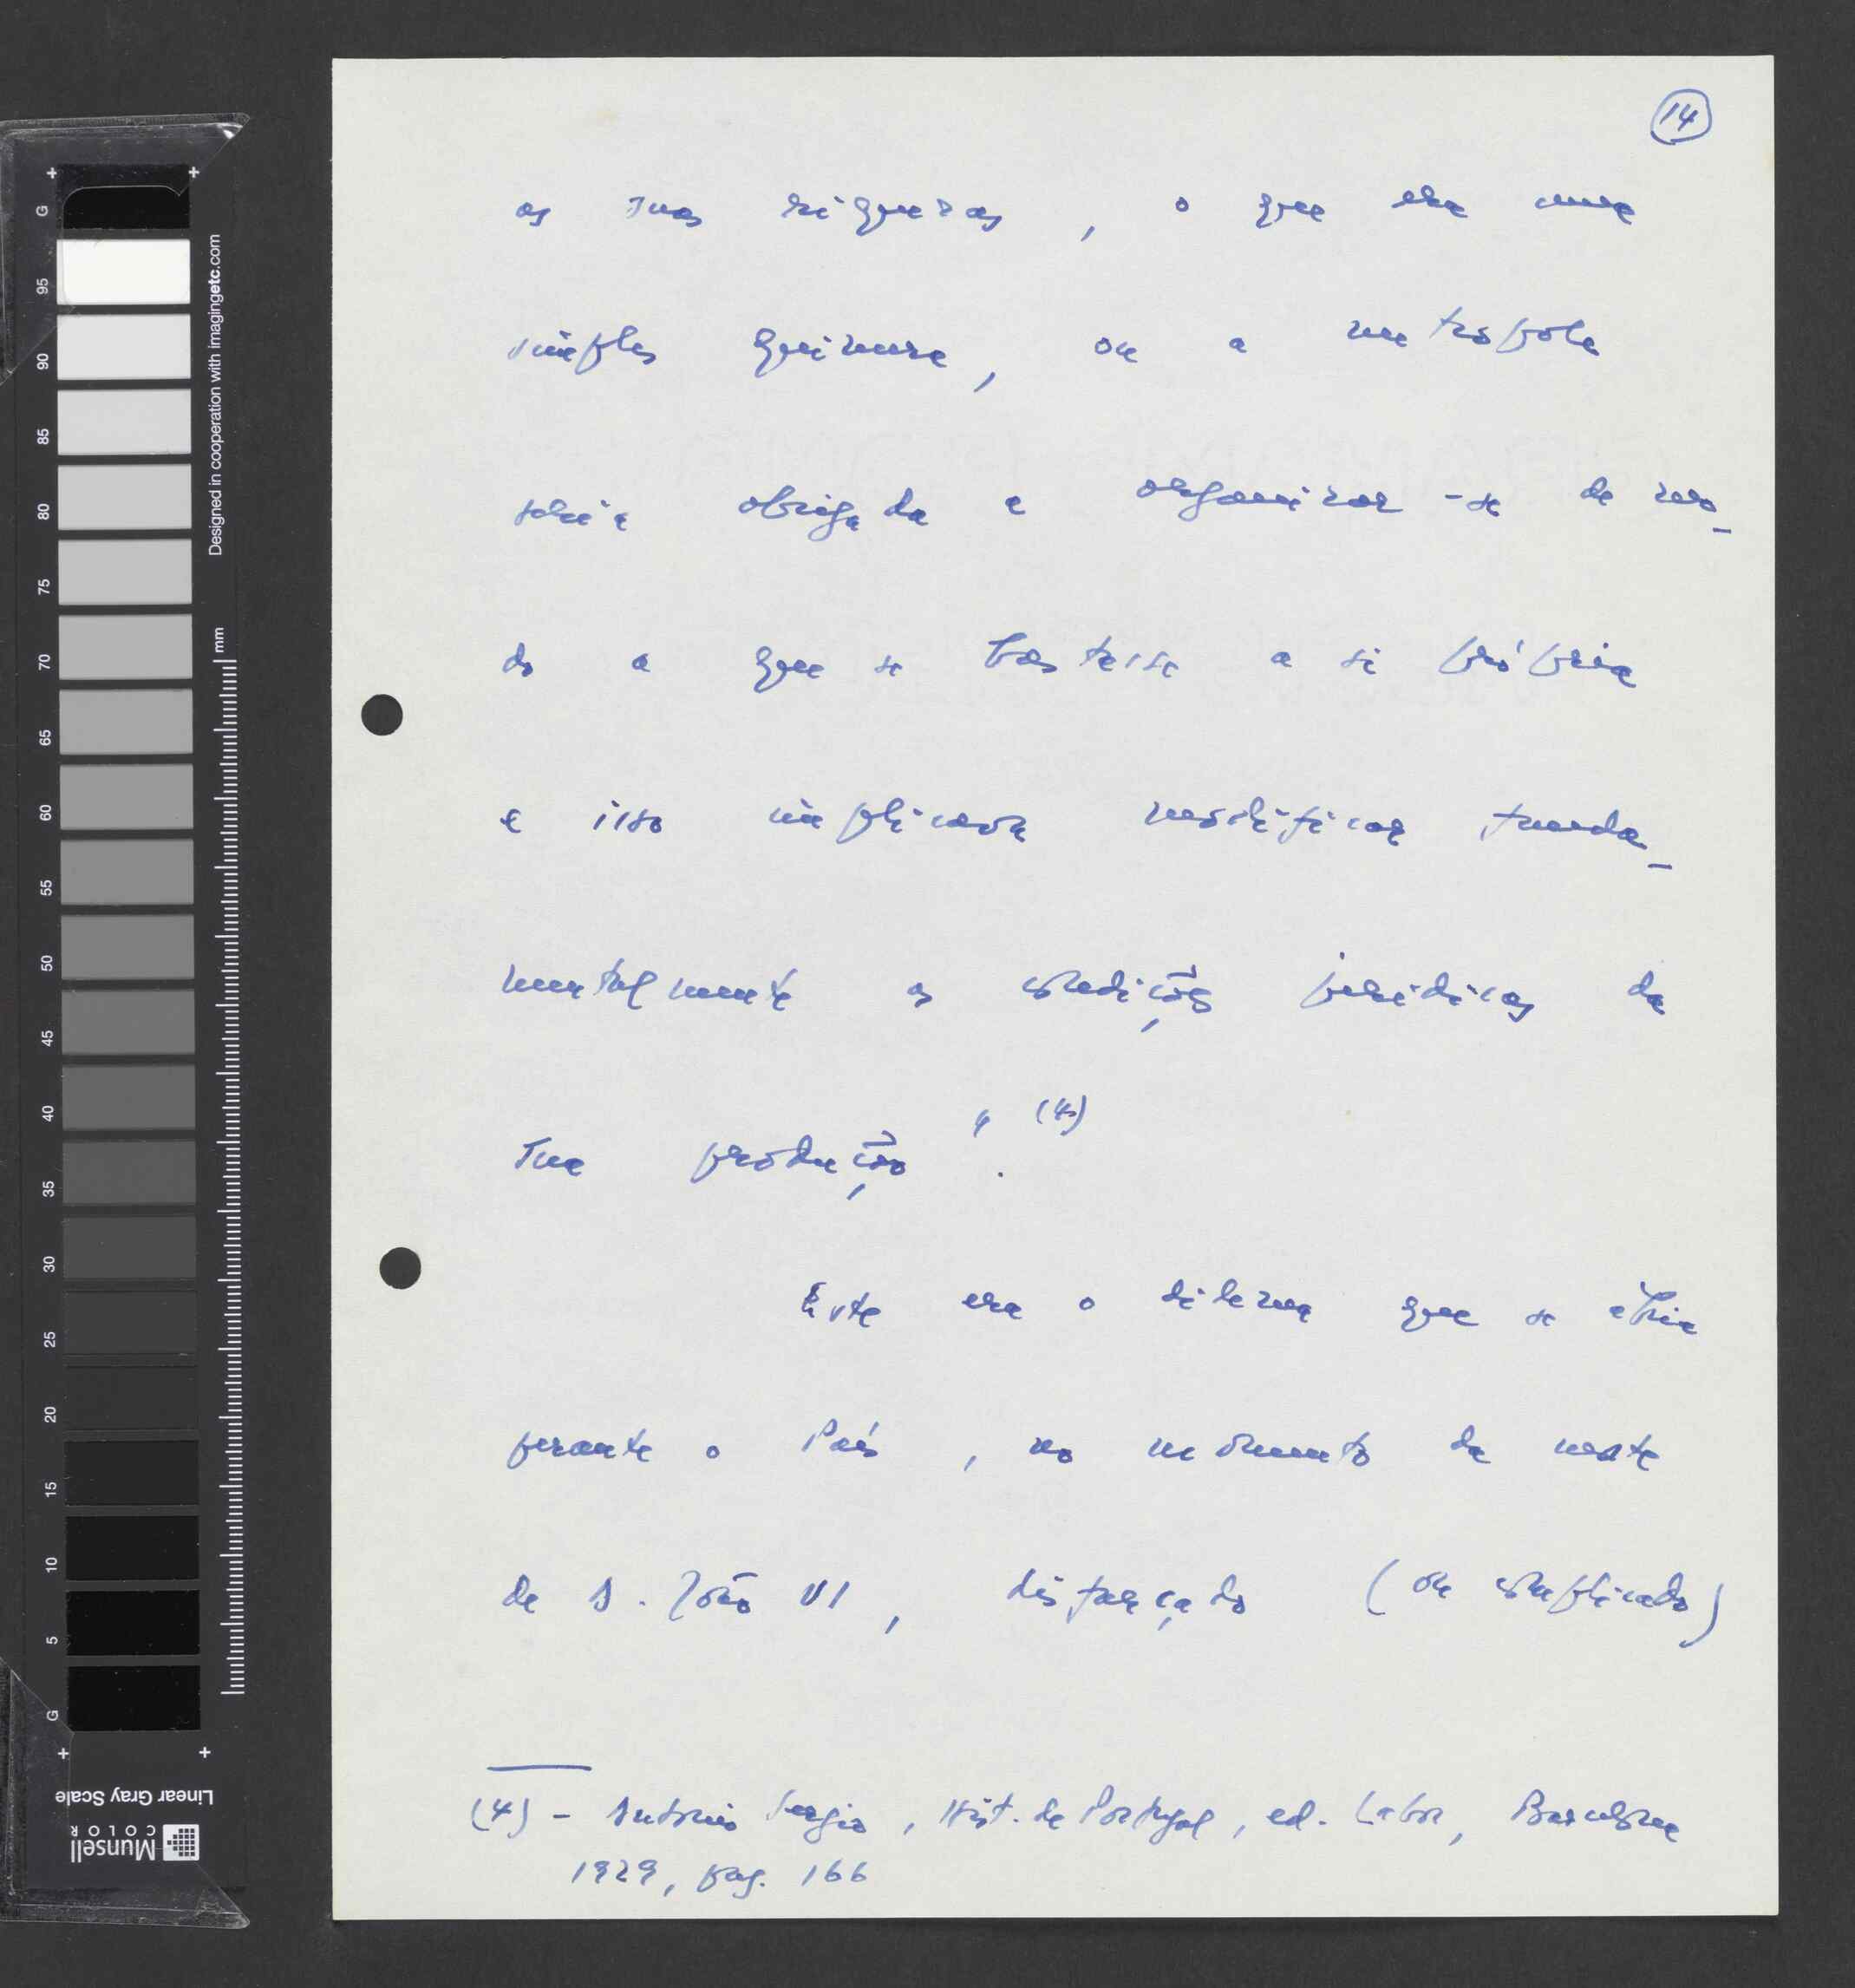 14
as suas riquezas, o que era uma
simples quimera, ou a metropole
seria obrigada a organizar-se de mo-
do a que se bastasse a si própria
e isso implicava modificar funda-
mentalmente as condições juridicas da
sua produção" (4).
Este era o dilema que se abria
perante o País, no momento da morte
de D. João VI, disfarçado (ou complicado)
(4) - Antonio Sergio, Hist. de Portugal, ed. Labor, Barcelona
1929, pag. 166
Designed in cooperation with imagingetc.com
mm
G 95 90 85 80 75 70 65 60 55 50 45 40 35 30 25 20 15 10 5 G
Linear Gray Scale
Munsell
COLOR